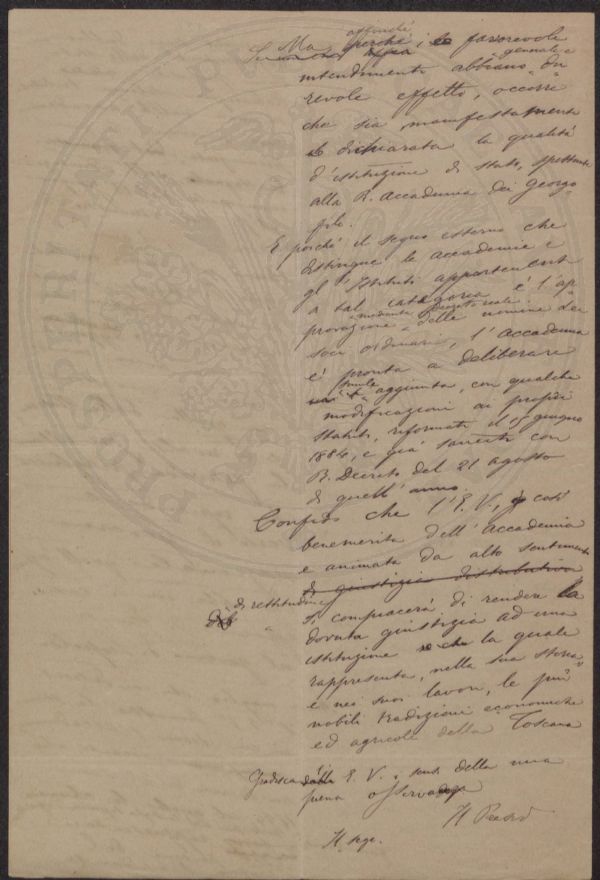 Ma, affinché i favorevole
intendimenti abbiano du
revole effetto, occorre
che sia manifestamente
dichiarata la qualità
d'istituzione di Stato, spettante
alla R. Accademia dei Georgo
fili.
E poiché il segno esterno che
distingue le accademie e
gl'Istituti appartenenti
a tal categoria è l'ap
provazione mediante Decreto reale delle nomine dei
soci ordinari, l'Accademia
è pronta a deliberare
simile aggiunta, con qualche
modificazioni ai propri
statuti, riformati il giugno
1884, e già sanciti con
R. Decreto del 21 agosto
di quell'anno.
Confido che l'E. V., così
benemerita dell'Accademia
e animata da alto sentimento
di giustizia distributiva
di rettitudine
si compiacerà di rendere la
dovuta giustizia ad una
istituzione la quale
rappresenta, nella sua storia
e nei suoi lavori, le più
nobili tradizioni economiche
ed agricole della Toscana
Gradisca l'E. V. i sensi della mia
piena osservanza
Il Presid
Il Segr.